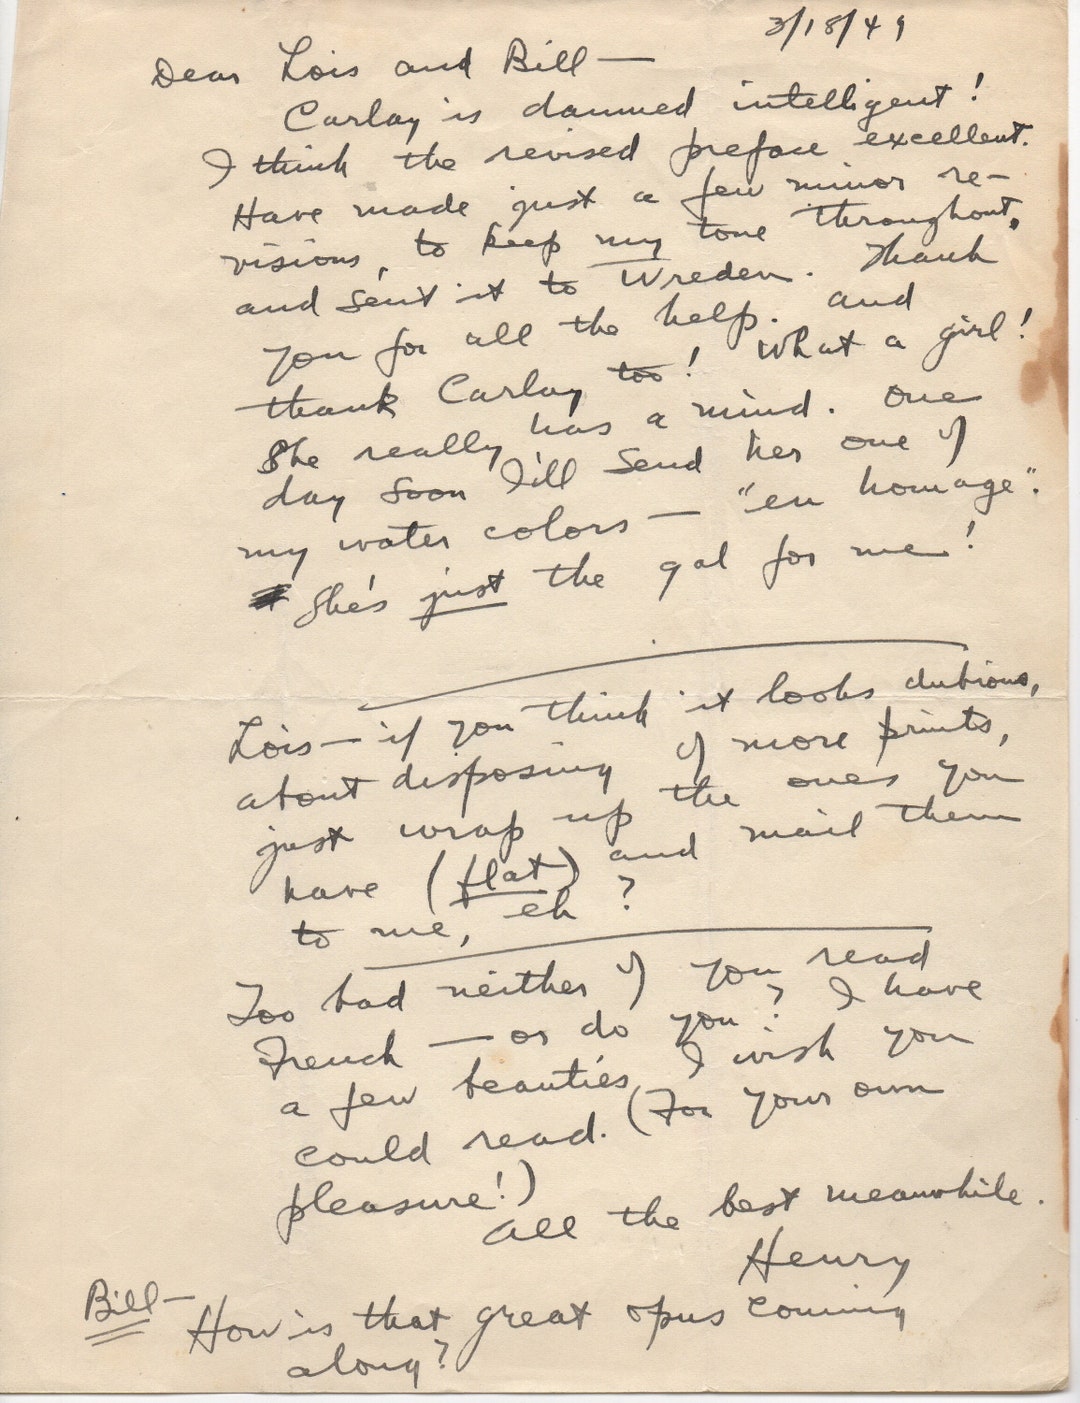 3/18/49
Dear Lois and Bill —
Carlay is damned intelligent!
I think the revised preface excellent.
Have made just a few minor re-
visions, to keep my tone throughout,
and sent it to Wreden. Thank
you for all the help. and
thank Carlay too! What a girl!
She really has a mind. One
day soon I'll send her one of
my water colors — "en homage".
She's just the gal for me!
Lois — if you think it looks dubious,
about disposing of more prints,
just wrap up the ones you
have (flat) and mail them
to me, eh?
Too bad neither of you read
French — or do you? I have
a few beauties I wish you
could read. (For your own
pleasure!)
All the best meanwhile.
Henry
Bill —
How is that great opus coming
along?